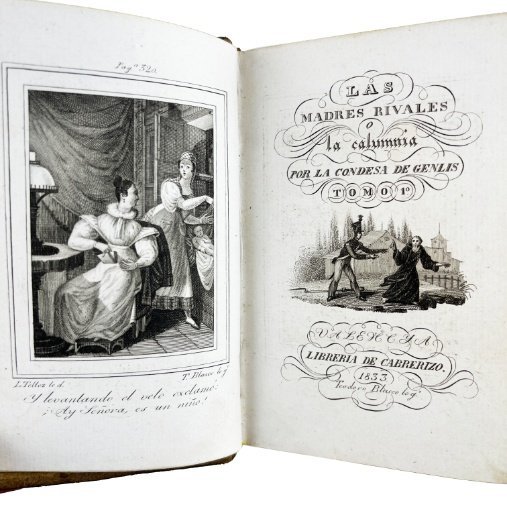 Pagª 320.
L. Tellez lo d.
Tº Blasco lo g.
Y levantando el velo exclamó:
¡Ay Señora, es un niño!
LAS
MADRES RIVALES
O
la calumnia
POR LA CONDESA DE GENLIS
TOMO 1º
VALENCIA
LIBRERÍA DE CABRERIZO.
1833
Teodoro Blasco lo gº.